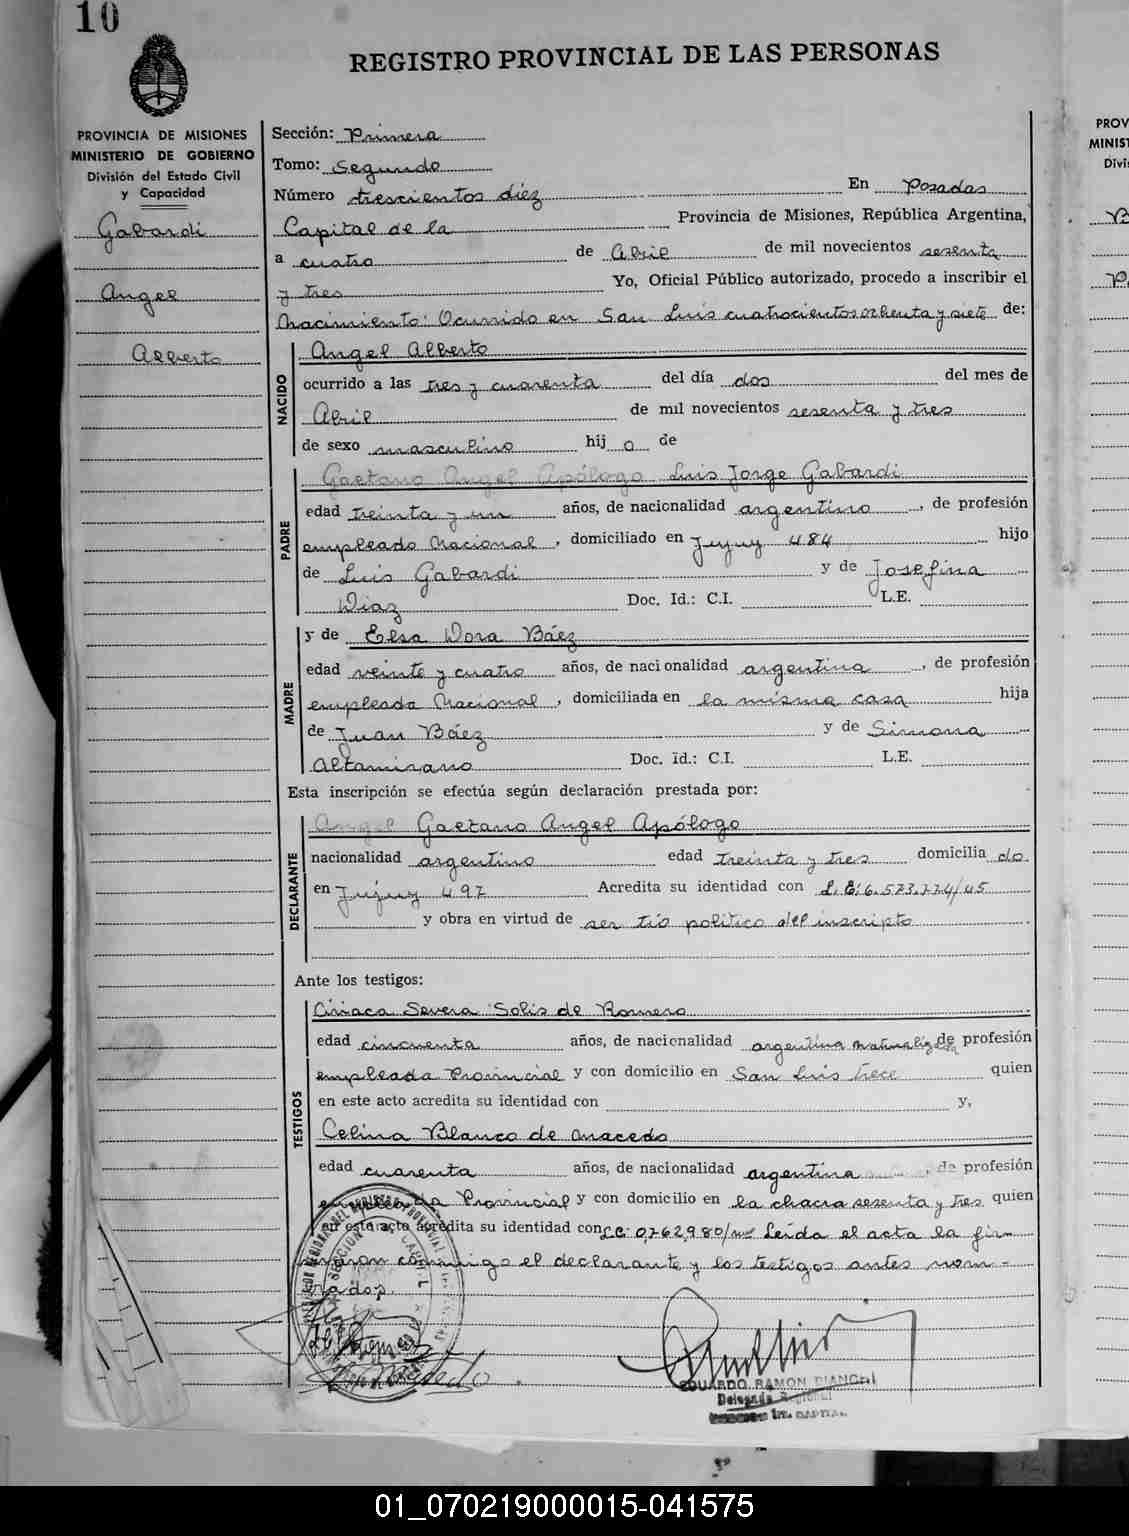 10
REGISTRO PROVINCIAL DE LAS PERSONAS
PROVINCIA DE MISIONES
MINISTERIO DE GOBIERNO
División del Estado Civil
y Capacidad
Gabardi
Angel
Alberto
Sección: Primera
Tomo: Segundo
Número trescientos diez En Posadas
Capital de la Provincia de Misiones, República Argentina,
a cuatro de Abril de mil novecientos sesenta
y tres Yo, Oficial Público autorizado, procedo a inscribir el
Nacimiento: Ocurrido en San Luis cuatrocientos ochenta y siete de:
NACIDO
Angel Alberto
ocurrido a las tres y cuarenta del día dos del mes de
Abril de mil novecientos sesenta y tres
de sexo masculino hij o de
PADRE
Gaetano Angel Apólogo Luis Jorge Gabardi
edad treinta y un años, de nacionalidad argentino, de profesión
empleado Nacional, domiciliado en Jujuy 484 hijo
de Luis Gabardi y de Josefina
Diaz Doc. Id.: C.I. L.E.
MADRE
y de Elsa Dora Báez
edad veinte y cuatro años, de nacionalidad argentina, de profesión
empleada Nacional, domiciliada en la misma casa hija
de Juan Báez y de Simona
Altamirano Doc. Id.: C.I. L.E.
Esta inscripción se efectúa según declaración prestada por:
DECLARANTE
Angel Gaetano Angel Apólogo
nacionalidad argentino edad treinta y tres domicilia do
en Jujuy 497 Acredita su identidad con L.E. 6.573.774/45
y obra en virtud de ser tío político del inscripto
Ante los testigos:
TESTIGOS
Ciriaca Severa Solis de Romero
edad cincuenta años, de nacionalidad argentina naturalizada de profesión
empleada Provincial y con domicilio en San Luis trece quien
en este acto acredita su identidad con y,
Celina Blanco de Macedo
edad cuarenta años, de nacionalidad argentina, de profesión
empleada Provincial y con domicilio en la chacra sesenta y tres quien
en este acto acredita su identidad con L.C. 0,762,980/ Leída el acta la fir-
maron conmigo el declarante y los testigos antes nom-
nados.
EDUARDO RAMON BIANCHI
Delegado Regional
CAPITAL
PROV
MINIST
Divi
01_070219000015-041575